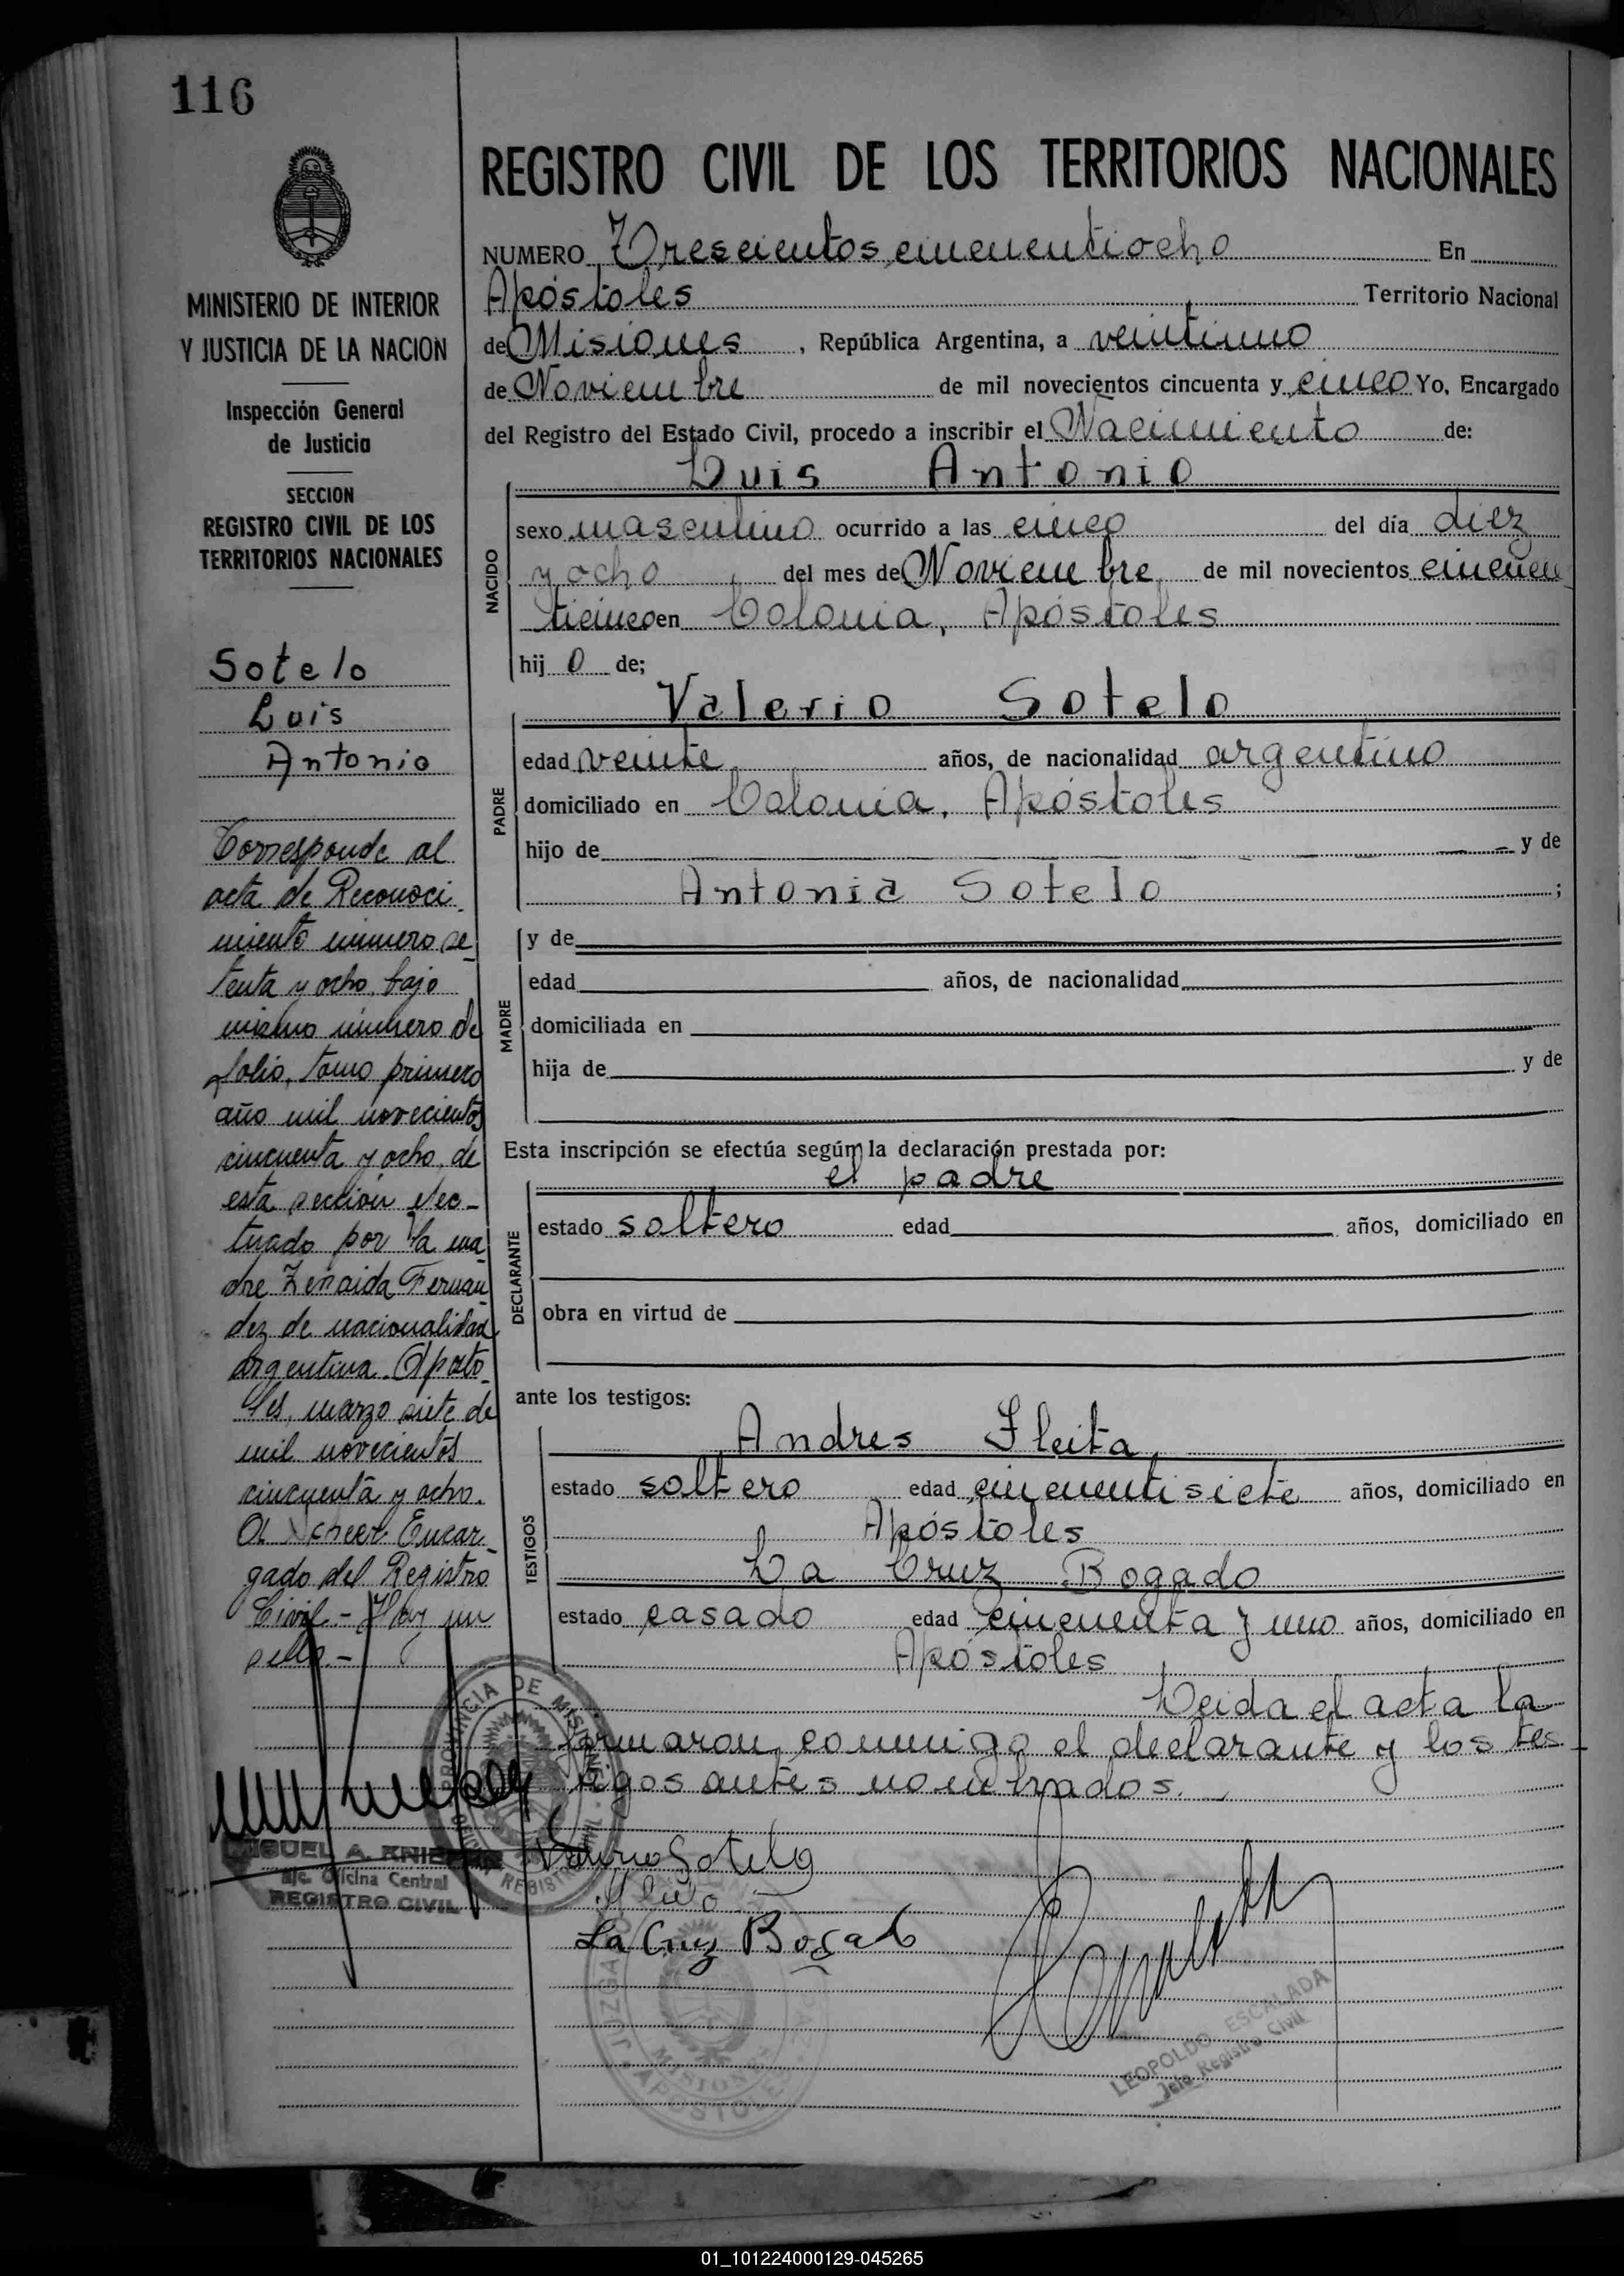 116
MINISTERIO DE INTERIOR
Y JUSTICIA DE LA NACION
Inspección General
de Justicia
SECCION
REGISTRO CIVIL DE LOS
TERRITORIOS NACIONALES
Sotelo
Luis
Antonio
Corresponde al
acta de Reconoci
miento número se
tenta y ocho, bajo
mismo número de
folio, tomo primero
año mil novecientos
cincuenta y ocho, de
esta sección efec-
tuado por la ma
dre Zenaida Fernan
dez de nacionalidad
argentina. Aposto
les, marzo siete de
mil novecientos
cincuenta y ocho.
Encar
gado del Registro
Civil.- Hay un
sello.-
MIGUEL A.
a/c. Oficina Central
REGISTRO CIVIL
REGISTRO CIVIL DE LOS TERRITORIOS NACIONALES
NUMERO Trescientos cincuentiocho En
Apóstoles Territorio Nacional
de Misiones, República Argentina, a veintiuno
de Noviembre de mil novecientos cincuenta y cinco Yo, Encargado
del Registro del Estado Civil, procedo a inscribir el Nacimiento de:
Luis Antonio
NACIDO
sexo masculino ocurrido a las cinco del día diez
y ocho del mes de Noviembre de mil novecientos cincuen
ticinco en Colonia, Apóstoles
hijo de;
Valerio Sotelo
PADRE
edad veinte años, de nacionalidad argentino
domiciliado en Colonia, Apóstoles
hijo de y de
Antonia Sotelo ;
MADRE
y de
edad años, de nacionalidad
domiciliada en
hija de y de
Esta inscripción se efectúa según la declaración prestada por:
el padre
DECLARANTE
estado soltero edad años, domiciliado en
obra en virtud de
ante los testigos:
TESTIGOS
Andres Fleita
estado soltero edad cincuentisiete años, domiciliado en
Apóstoles
La Cruz Bogado
estado casado edad cincuenta y uno años, domiciliado en
Apóstoles
Leida el acta la
firmaron conmigo el declarante y los tes
tigos antes nombrados.
PROVINCIA DE MISIONES
Valerio Sotelo
La Cruz Bogado
APOSTOLES
MISIONES
LEOPOLDO ESCALADA
Jefe Registro Civil
01_101224000129-045265